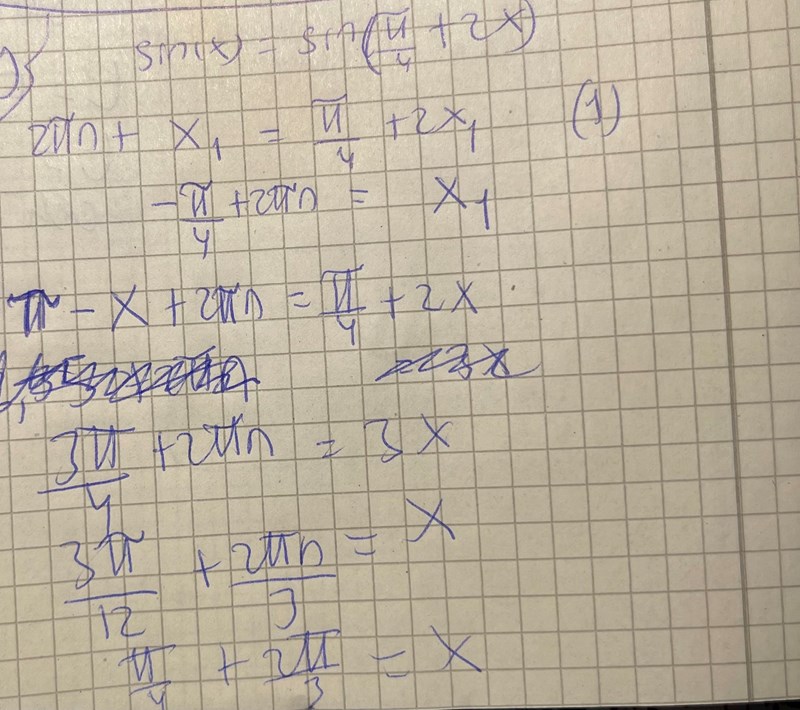 sin(x) = sin(π/4 + 2x)
2πn + x₁ = π/4 + 2x₁ (1)
-π/4 + 2πn = x₁
π - x + 2πn = π/4 + 2x
3π/4 + 2πn = 3x
3π/12 + 2πn/3 = x
π/4 + 2π/3 = x